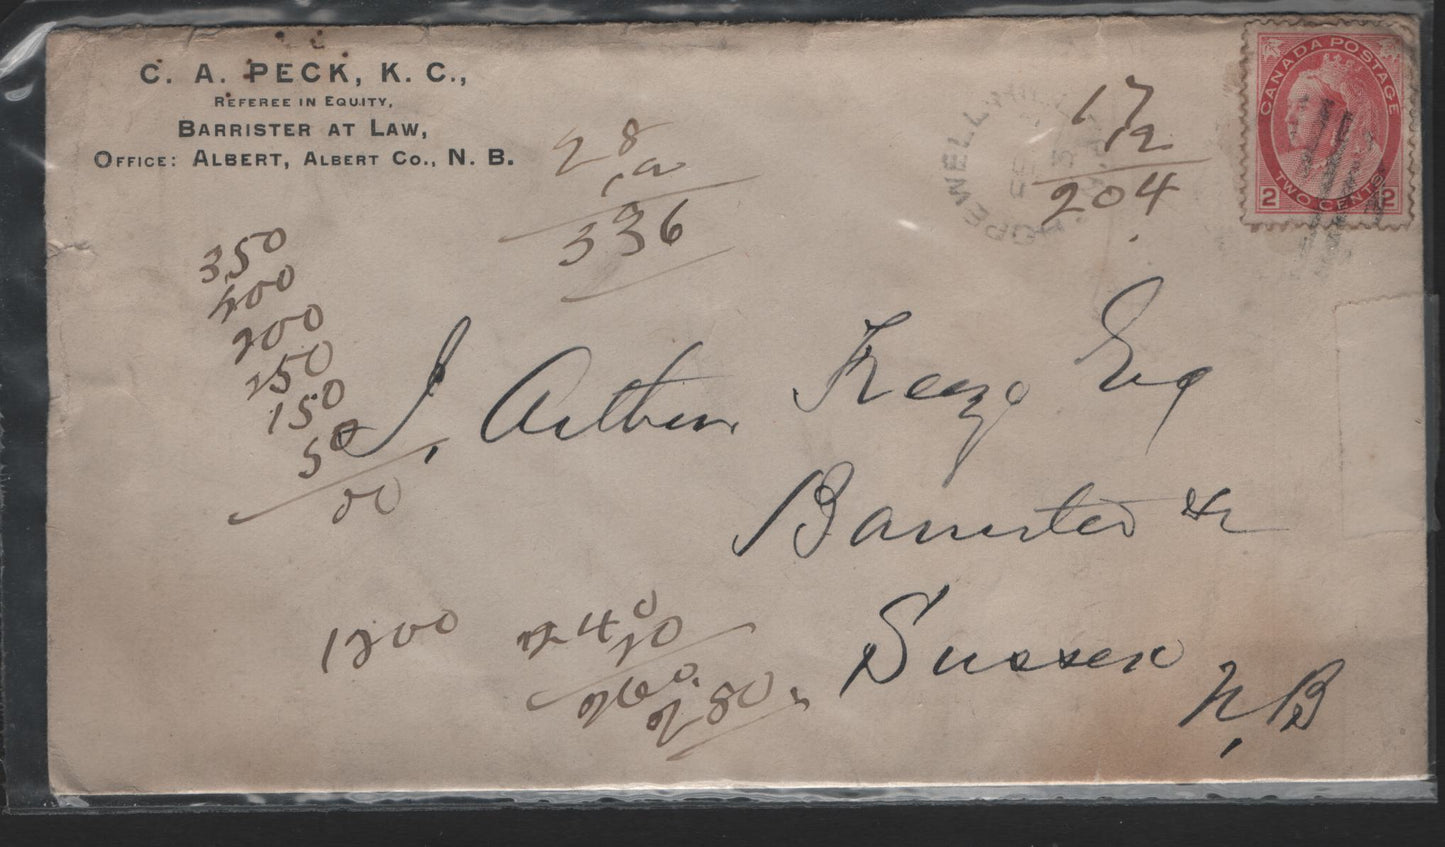 C. A. PECK, K. C.,
REFEREE IN EQUITY,
BARRISTER AT LAW,
OFFICE: ALBERT, ALBERT CO., N. B.
CANADA POSTAGE
2 TWO CENTS 2
HOPEWELL
17
12
204
28
12
336
350
400
200
150
50
00
J. Arthur Freeze Esq
Barrister &c
Sussex
N. B
1200
240
20
260
280